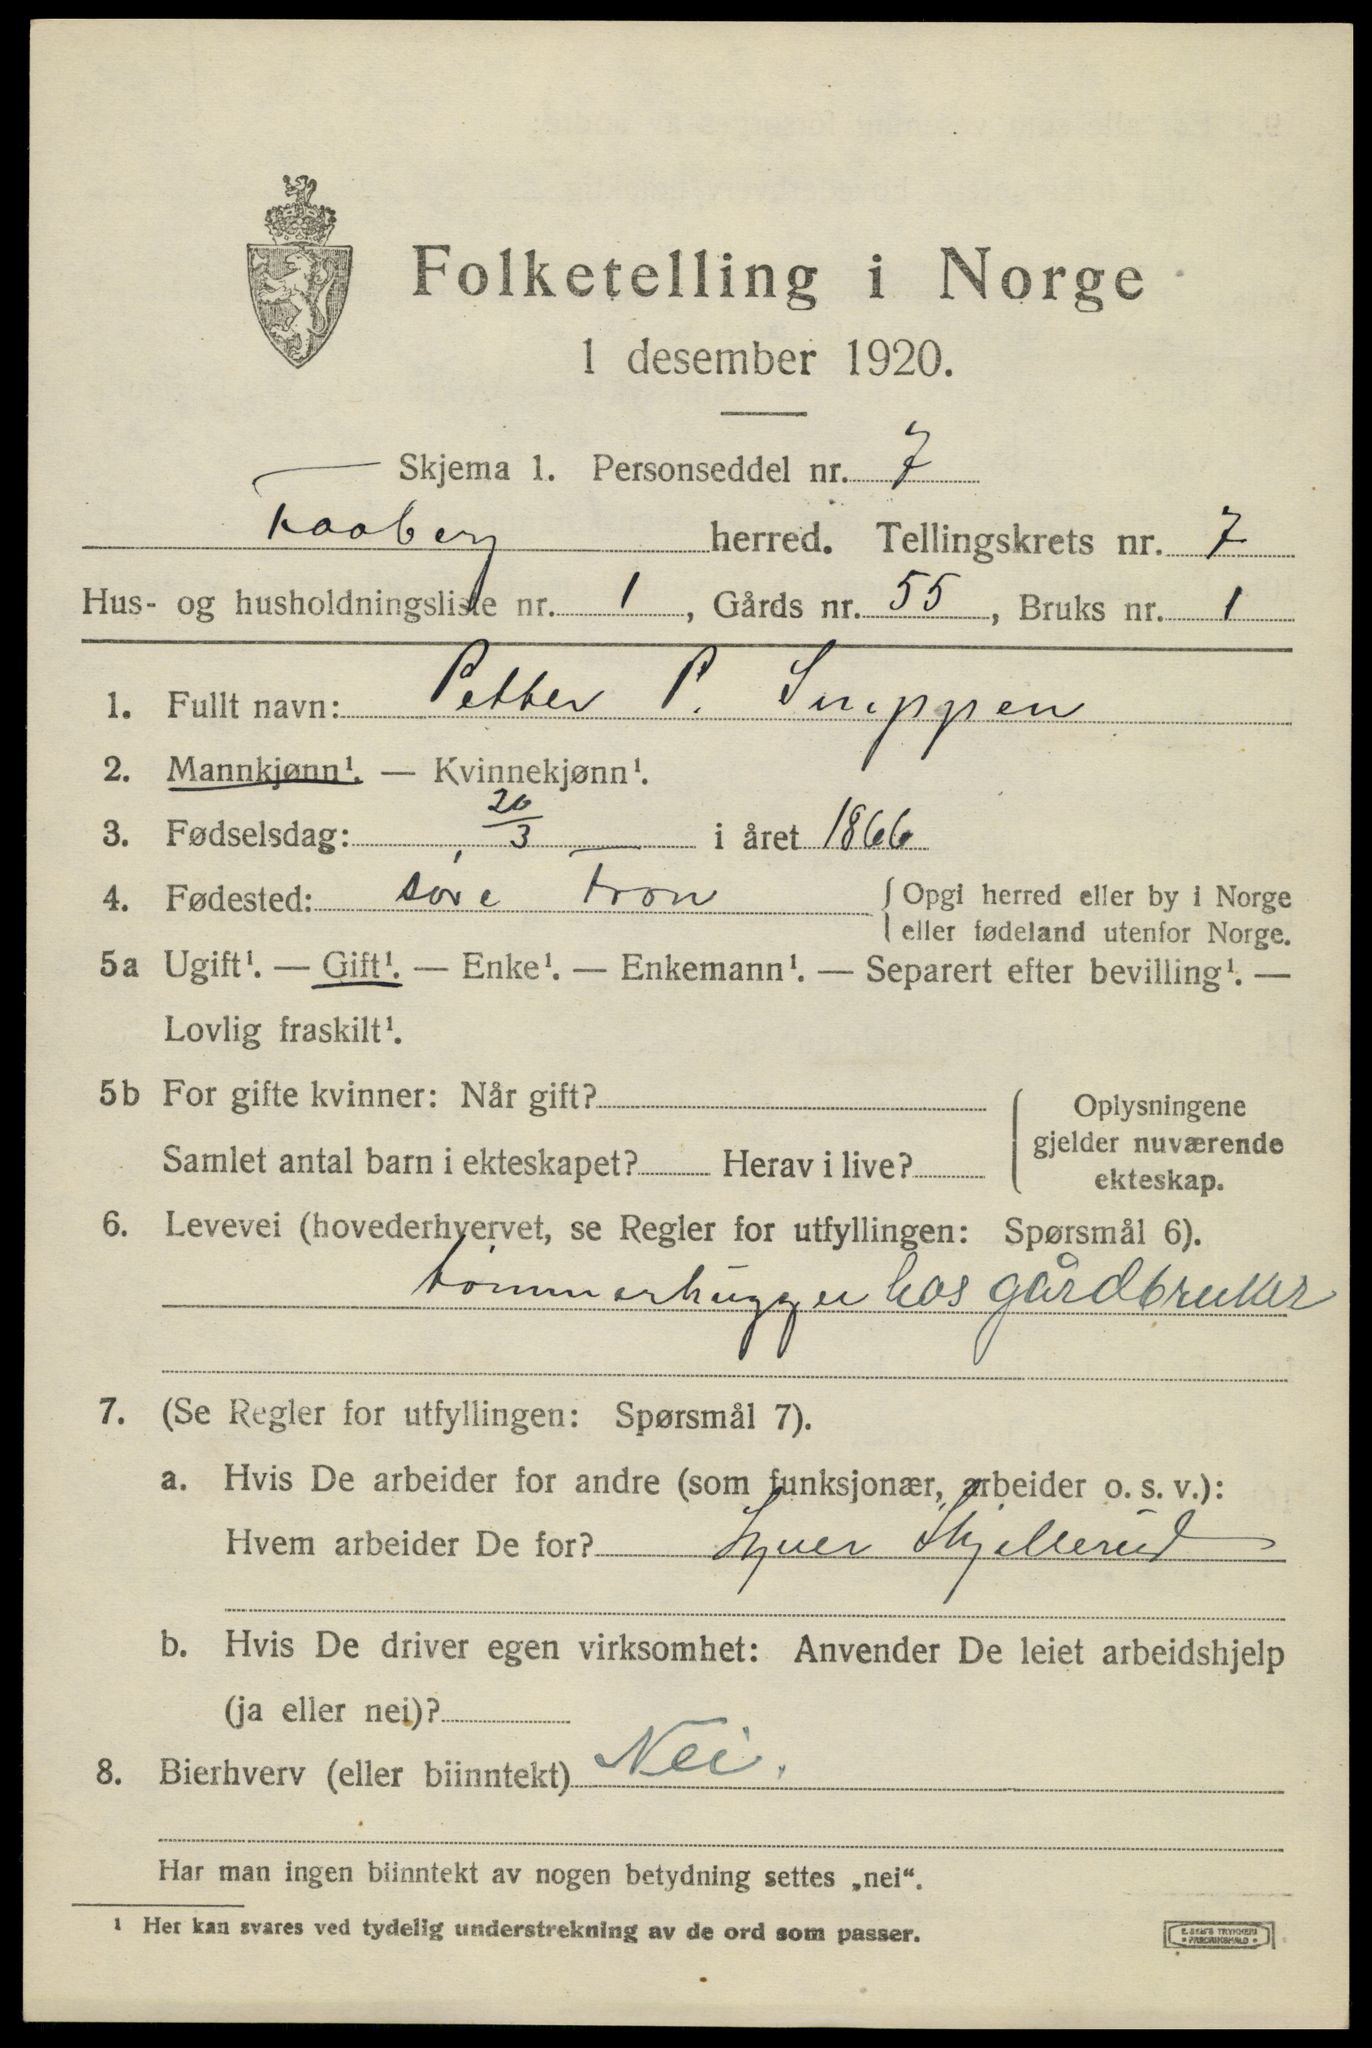 Folketelling i Norge
1 desember 1920.
Skjema 1. Personseddel nr. 7
Faaberg herred. Tellingskrets nr. 7
Hus- og husholdningsliste nr. 1, Gårds nr. 55, Bruks nr. 1
1. Fullt navn: Petter P.
2. Mannkjønn¹. — Kvinnekjønn¹.
3. Fødselsdag: 20/3 i året 1866
4. Fødested: Søre Fron {Opgi herred eller by i Norge
eller fødeland utenfor Norge.
5a Ugift¹. — Gift¹. — Enke¹. — Enkemann¹. — Separert efter bevilling¹. —
Lovlig fraskilt¹.
5b For gifte kvinner: Når gift?
Samlet antal barn i ekteskapet? Herav i live?
Oplysningene
gjelder nuværende
ekteskap.
6. Levevei (hovederhvervet, se Regler for utfyllingen: Spørsmål 6).
tømmerhugger hos gårdbruker
7. (Se Regler for utfyllingen: Spørsmål 7).
a. Hvis De arbeider for andre (som funksjonær, arbeider o. s. v.):
Hvem arbeider De for? Syver Skjellerud
b. Hvis De driver egen virksomhet: Anvender De leiet arbeidshjelp
(ja eller nei)?
8. Bierhverv (eller biinntekt) Nei.
Har man ingen biinntekt av nogen betydning settes „nei“.
¹ Her kan svares ved tydelig understrekning av de ord som passer.